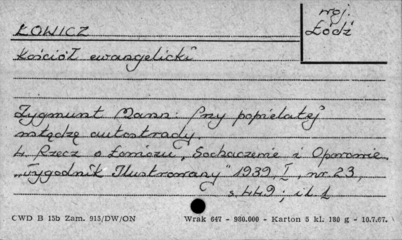 woj.
Łódź
ŁOWICZ
Kościół ewangelicki
Zygmunt Mann: Przy popielatej
wstędze autostrady.
4. Rzecz o Łowiczu, Sochaczewie i Oporowie.
"Tygodnik Ilustrowany" 1939, I, nr. 23,
s. 449; il. 1
CWD B 15b Zam. 915/DW/ON Wrak 647 - 980.000 - Karton 5 kl. 180 g - 10.7.67.